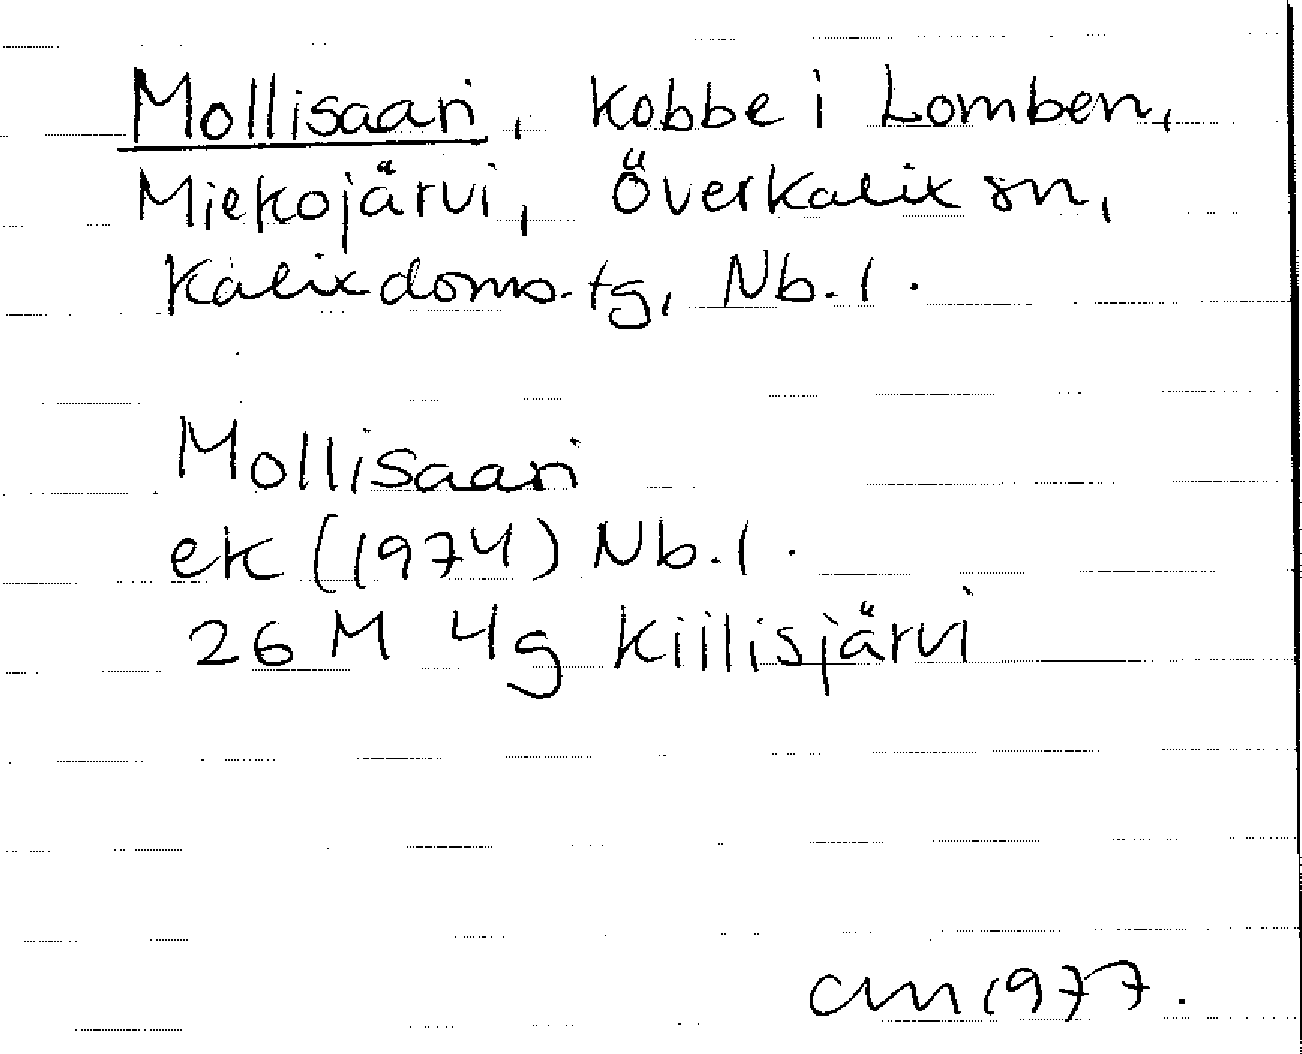 Mollisaari, kobbe i Lomben,
Miekojärvi, Överkalix sn,
Kalix doms. tg, Nb. l.
Mollisaari
ek (1974) Nb. l.
26 M 4g Kiilisjärvi
CM 1977.